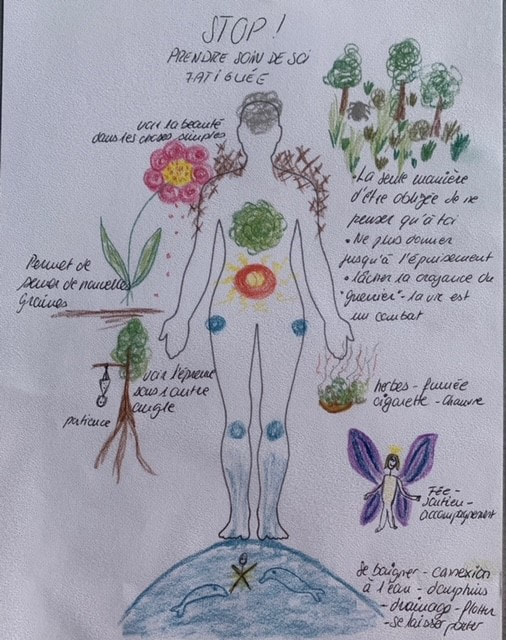 STOP !
PRENDRE SOIN DE SOI
FATIGUÉE
voir la beauté
dans les choses simples
• La seule manière
d'être obligée de ne
penser qu'à toi
• Ne plus donner
jusqu'à l'épuisement
• lâcher la croyance du
"guerrier" - la vie est
un combat
Permet de
semer de nouvelles
graines
voir l'épreuve
sous 1 autre
angle
patience
herbes - fumée
cigarette - chanvre
Fée -
soutien -
accompagnement
se baigner - connexion
à l'eau - dauphins
- drainage - flotter
- se laisser porter